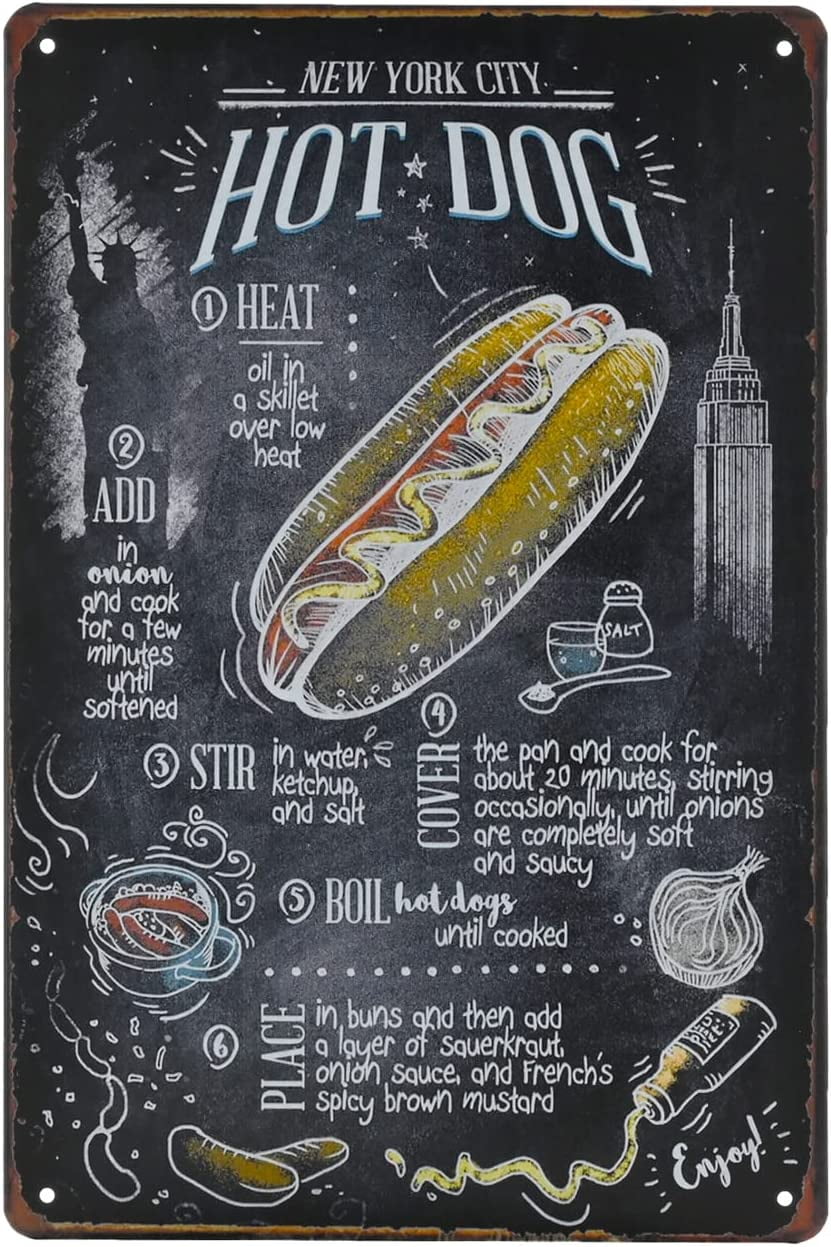 NEW YORK CITY
HOT DOG
1 HEAT
oil in
a skillet
over low
heat
2
ADD
in
onion
and cook
for a few
minutes
until
softened
SALT
3 STIR
in water,
ketchup,
and salt
4
COVER
the pan and cook for
about 20 minutes, stirring
occasionally, until onions
are completely soft
and saucy
5 BOIL hot dogs
until cooked
6 PLACE
in buns and then add
a layer of sauerkraut,
onion sauce, and French's
spicy brown mustard
Enjoy!